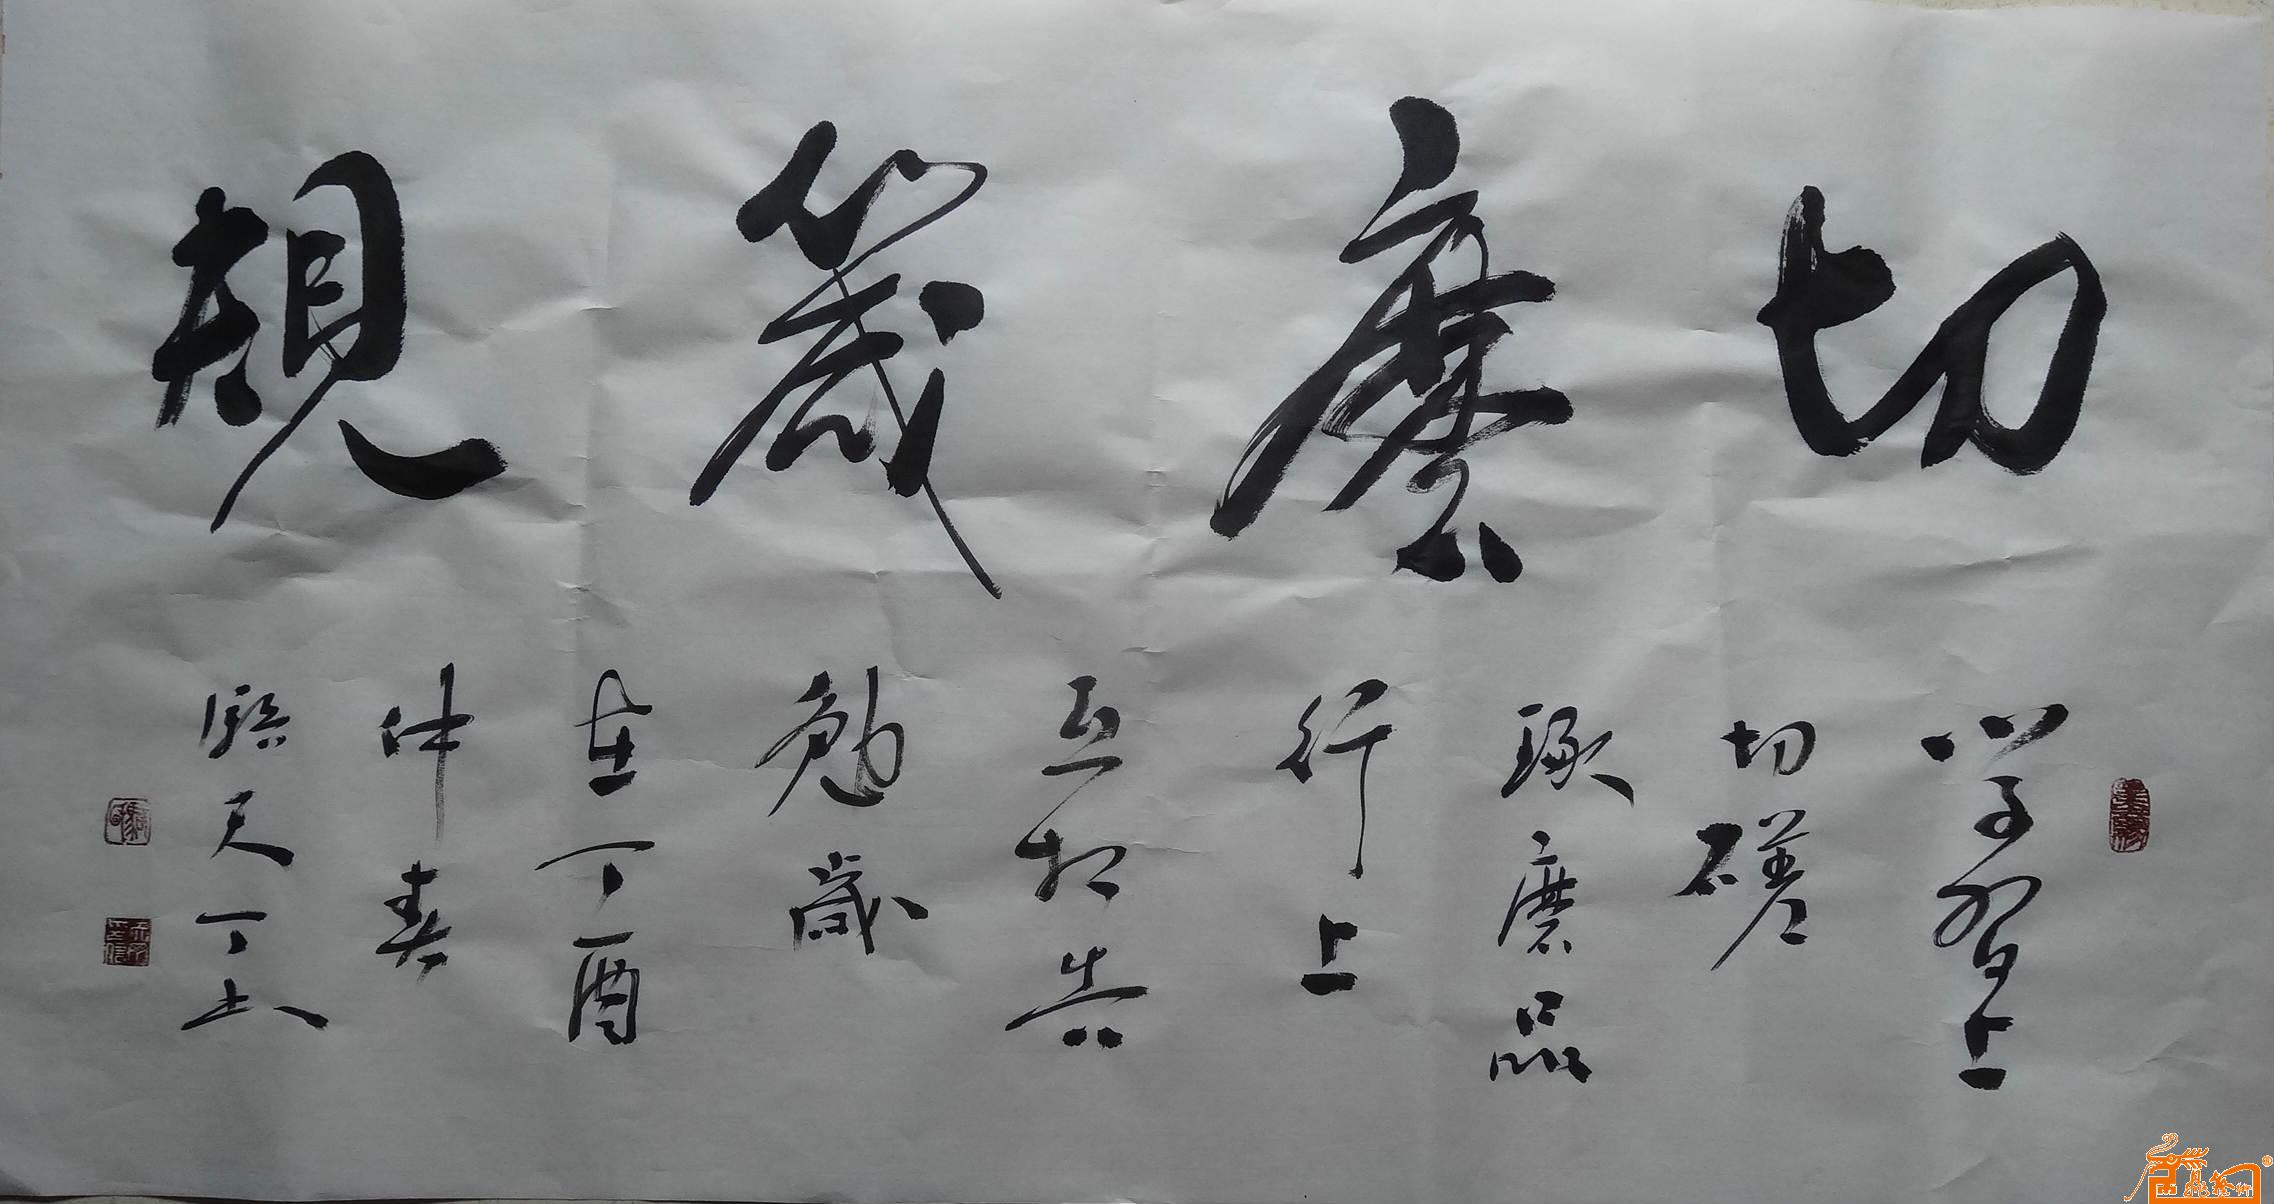 切磨箴規
学習上
切磋
琢磨品
行上
互相告
勉歲
在丁酉
仲春
天丁